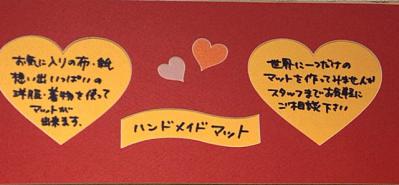 お気に入りの布・紙
想い出いっぱいの
洋服・着物を使って
マットが
出来ます。
世界に一つだけの
マットを作ってみませんか
スタッフまでお気軽に
ご相談下さい
ハンドメイドマット